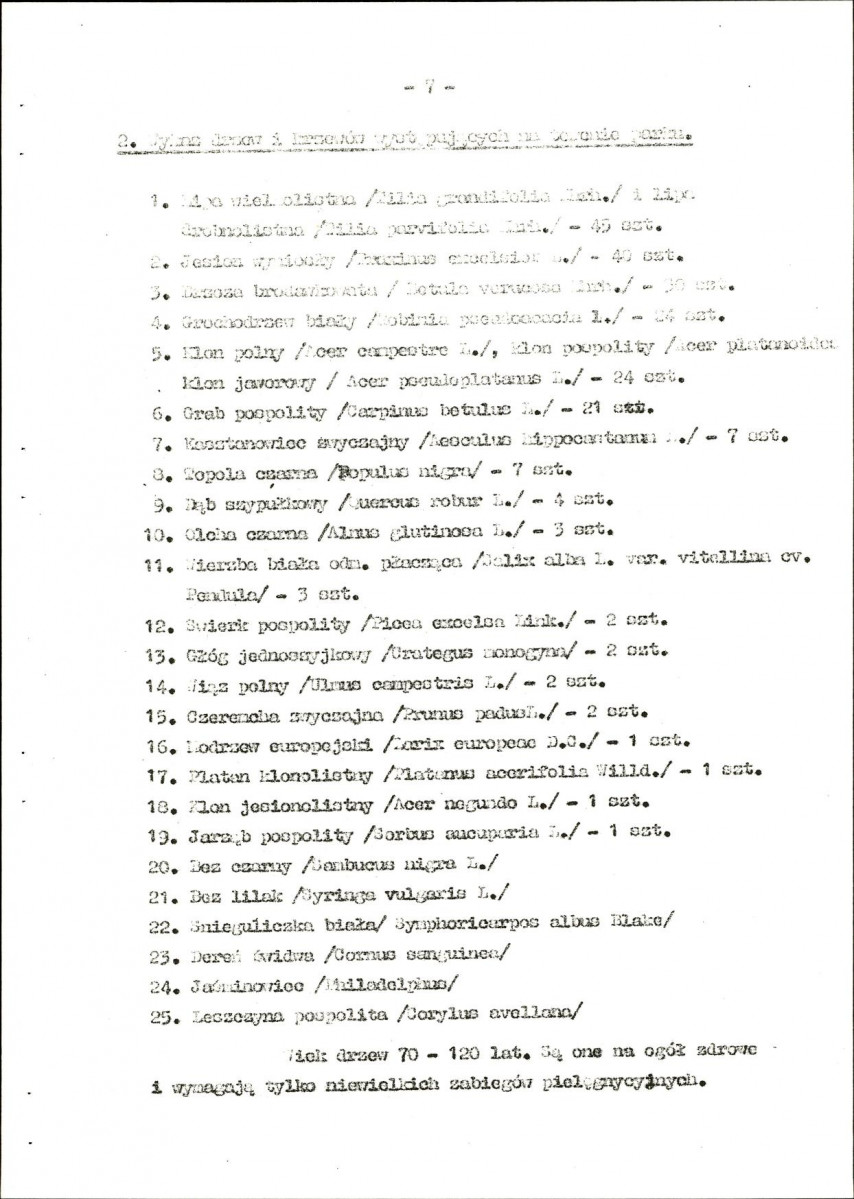 - 7 -
2. Wykaz drzew i krzewów występujących na terenie parku.
1. Lipa wielkolistna /Tilia grandifolia Ehrh./ i lipa
drobnolistna /Tilia parvifolia Ehrh./ - 45 szt.
2. Jesion wyniosły /Fraxinus excelsior L./ - 40 szt.
3. Brzoza brodawkowata / Betula verucosa Ehrh./ - 30 szt.
4. Grochodrzew biały /Robinia pseudoacacia L./ - 24 szt.
5. Klon polny /Acer campestre L./, klon pospolity /Acer platanoides
klon jaworowy / Acer pseudoplatanus L./ - 24 szt.
6. Grab pospolity /Carpinus betulus L./ - 21 szt.
7. Kasztanowiec zwyczajny /Aesculus hippocastanum L./ - 7 szt.
8. Topola czarna /Populus nigra/ - 7 szt.
9. Dąb szypułkowy /Quercus robur L./ - 4 szt.
10. Olcha czarna /Alnus glutinosa L./ - 3 szt.
11. Wierzba biała odm. płacząca /Salix alba L. var. vitellina cv.
Pendula/ - 3 szt.
12. Świerk pospolity /Picea excelsa Link./ - 2 szt.
13. Głóg jednoszyjkowy /Crategus monogyna/ - 2 szt.
14. Wiąz polny /Ulmus campestris L./ - 2 szt.
15. Czeremcha zwyczajna /Prunus padusL./ - 2 szt.
16. Modrzew europejski /Larix europeae D.C./ - 1 szt.
17. Platan klonolistny /Platanus acerifolia Willd./ - 1 szt.
18. Klon jesionolistny /Acer negundo L./ - 1 szt.
19. Jarząb pospolity /Sorbus aucuparia L./ - 1 szt.
20. Bez czarny /Sambucus nigra L./
21. Bez lilak /Syringa vulgaris L./
22. Śnieguliczka biała/ Symphoricarpos albus Blake/
23. Dereń świdwa /Cornus sanguinea/
24. Jaśminowiec /Philadelphus/
25. Leszczyna pospolita /Corylus avellana/
Wiek drzew 70 - 120 lat. Są one na ogół zdrowe
i wymagają tylko niewielkich zabiegów pielęgnycyjnych.